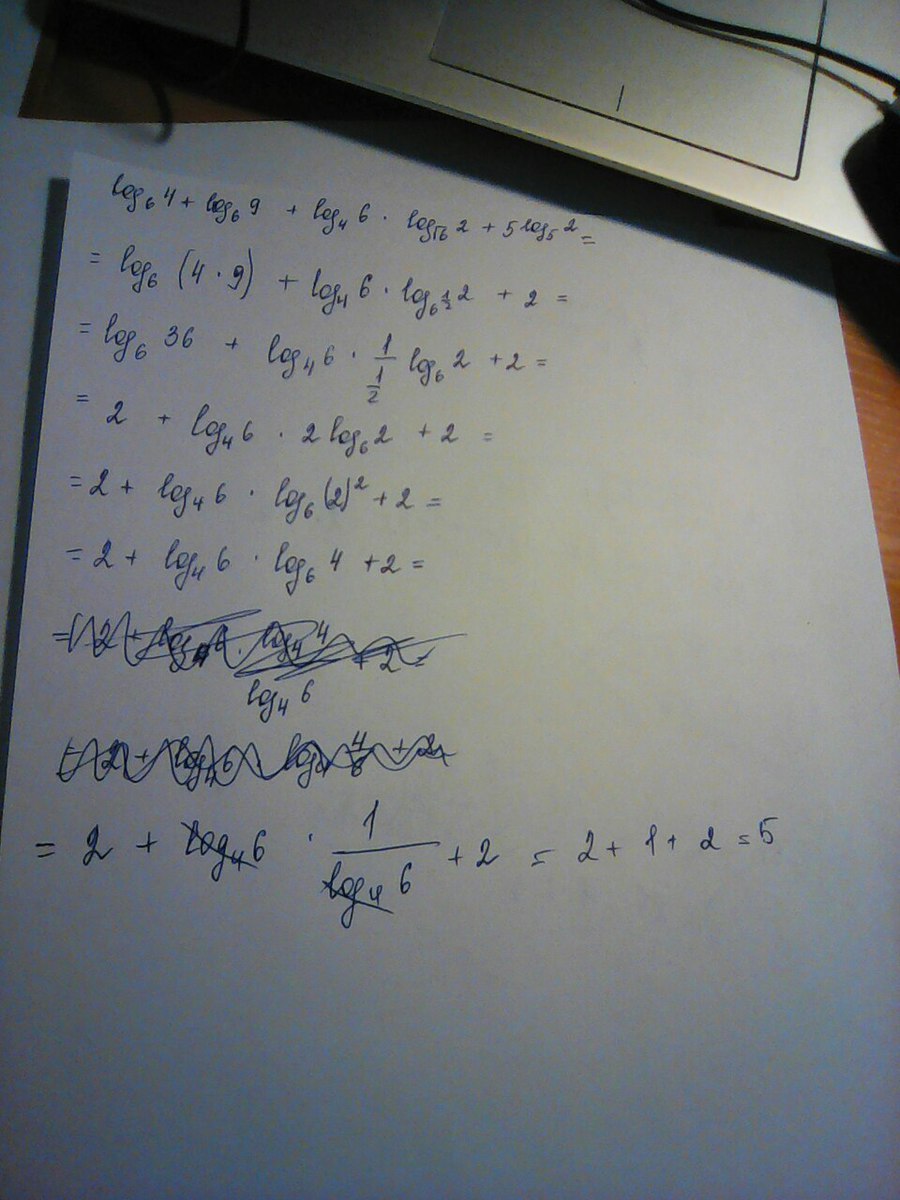 log₆ 4 + log₆ 9 + log₄ 6 · log_√6 2 + 5^log₅ 2 =
= log₆ (4 · 9) + log₄ 6 · log_6^½ 2 + 2 =
= log₆ 36 + log₄ 6 · 1/(1/2) log₆ 2 + 2 =
= 2 + log₄ 6 · 2 log₆ 2 + 2 =
= 2 + log₄ 6 · log₆ (2)² + 2 =
= 2 + log₄ 6 · log₆ 4 + 2 =
log₄ 6
= 2 + log₄ 6 · 1/(log₄ 6) + 2 = 2 + 1 + 2 = 5